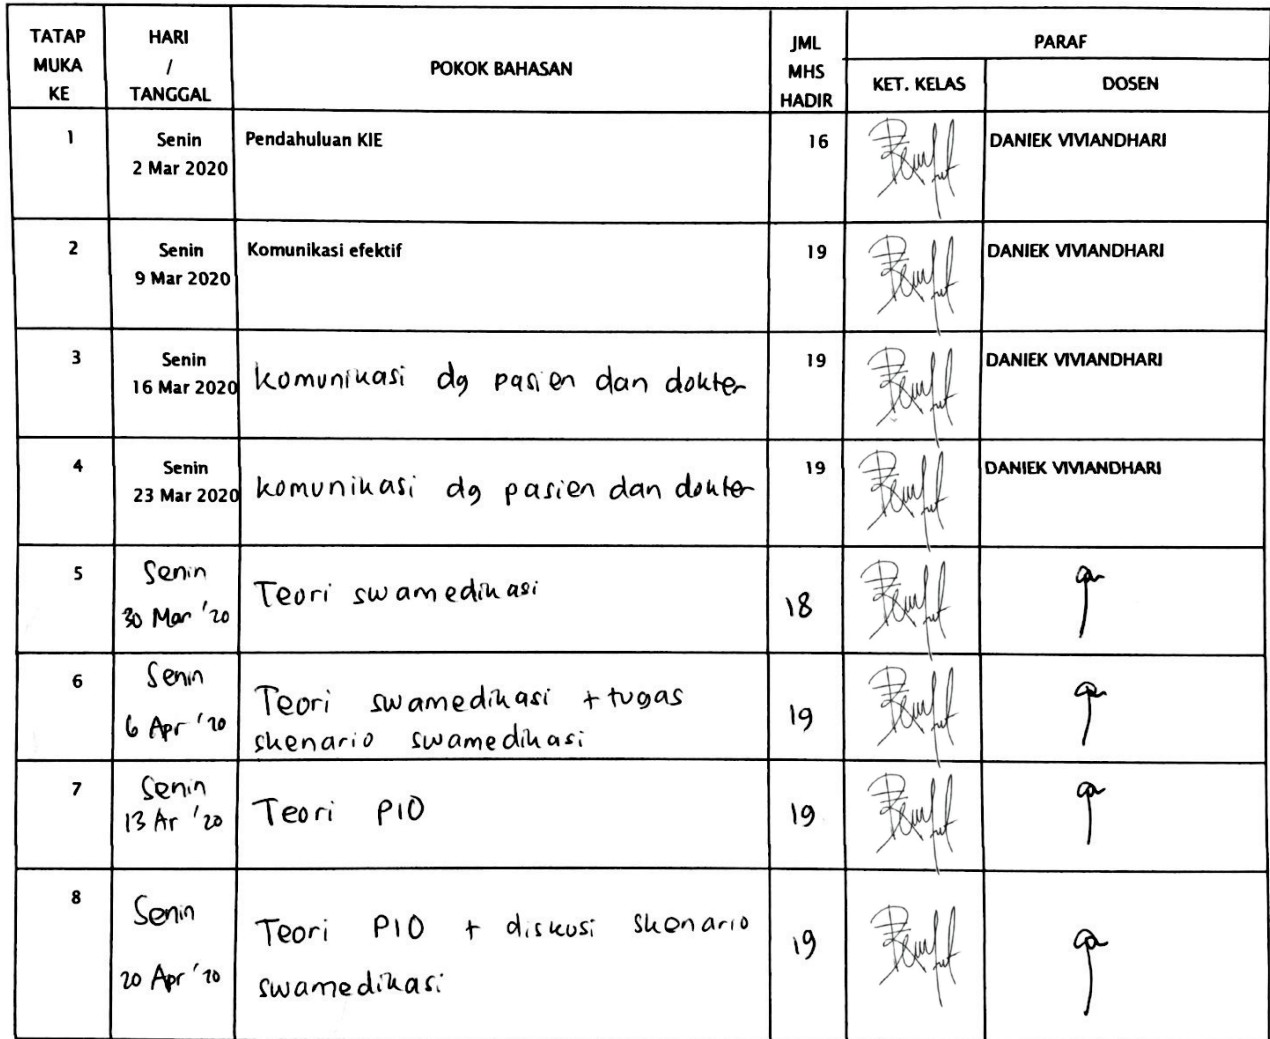 TATAP MUKA KE
HARI / TANGGAL
POKOK BAHASAN
JML MHS HADIR
PARAF
KET. KELAS
DOSEN
1
Senin
2 Mar 2020
Pendahuluan KIE
16
DANIEK VIVIANDHARI
2
Senin
9 Mar 2020
Komunikasi efektif
19
DANIEK VIVIANDHARI
3
Senin
16 Mar 2020
komunikasi dg pasien dan dokter
19
DANIEK VIVIANDHARI
4
Senin
23 Mar 2020
komunikasi dg pasien dan dokter
19
DANIEK VIVIANDHARI
5
Senin
30 Mar '20
Teori swamedikasi
18
6
Senin
6 Apr '20
Teori swamedikasi + tugas
skenario swamedikasi
19
7
Senin
13 Ar '20
Teori PIO
19
8
Senin
20 Apr '20
Teori PIO + diskusi skenario
swamedikasi
19